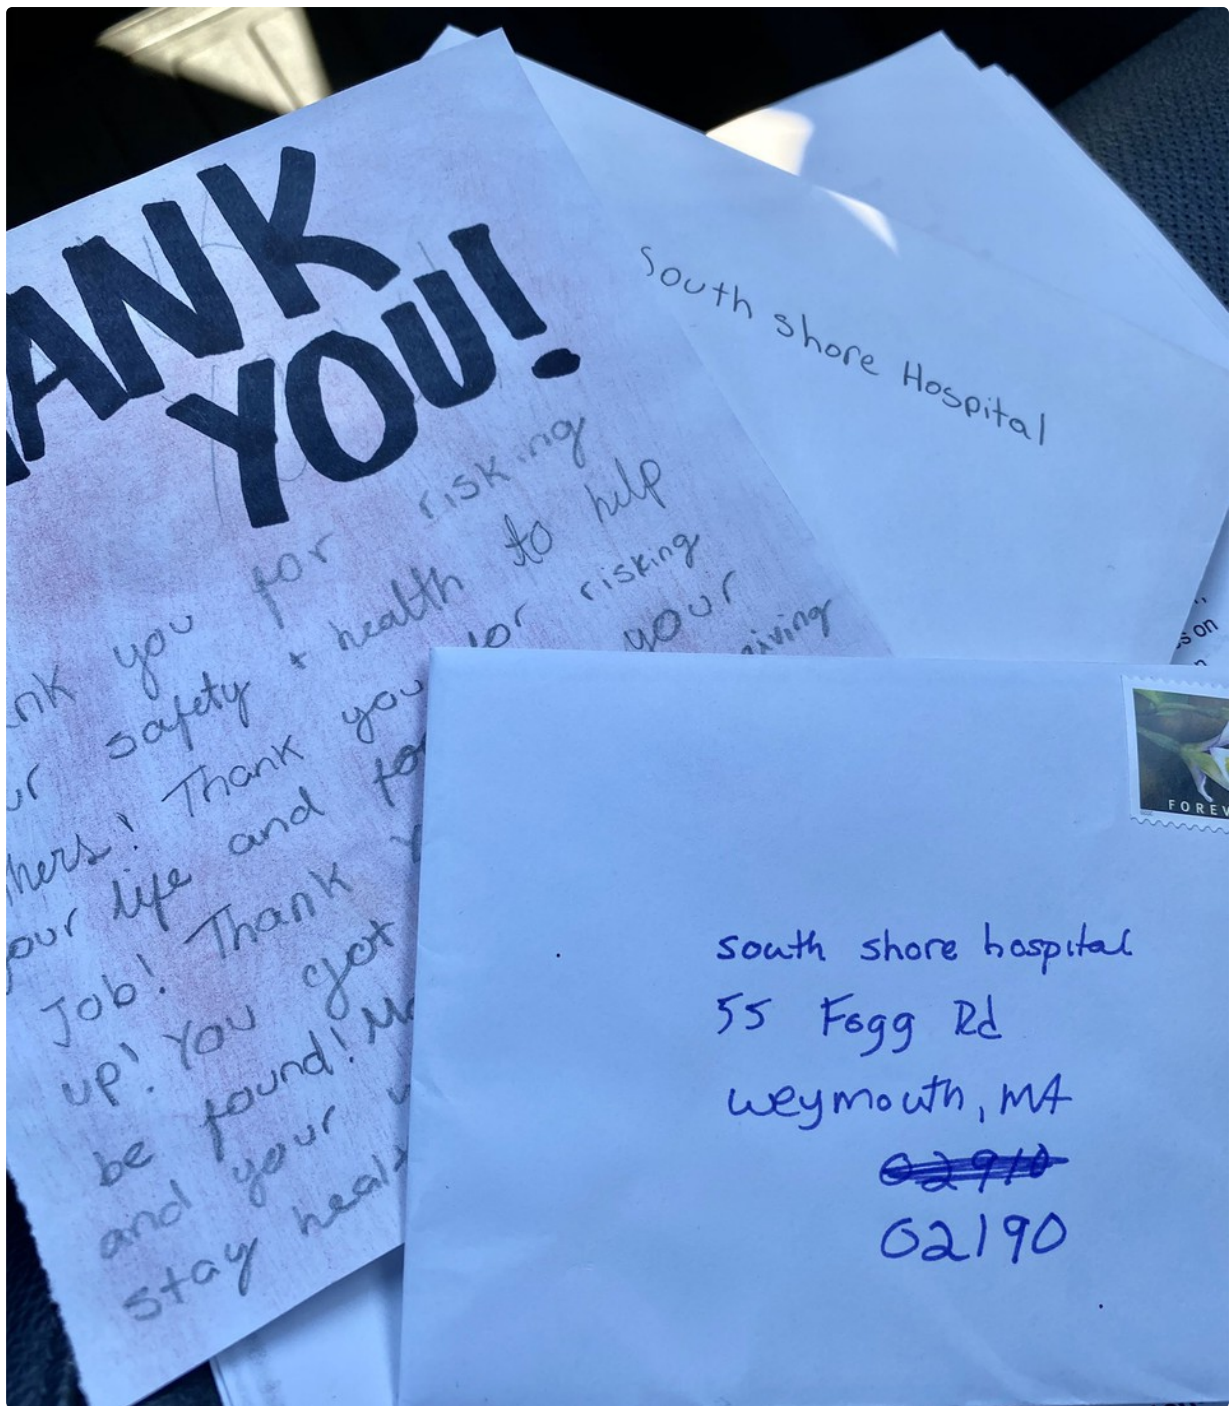 ANK
YOU!
you for risking
safety + health to help
hers! Thank you for risking
our life and for your
Job! Thank giving
up! You got
be found!
and your
stay healt
South shore Hospital
s on
FOREV
south shore hospital
55 Fogg Rd
Weymouth, MA
02910
02190